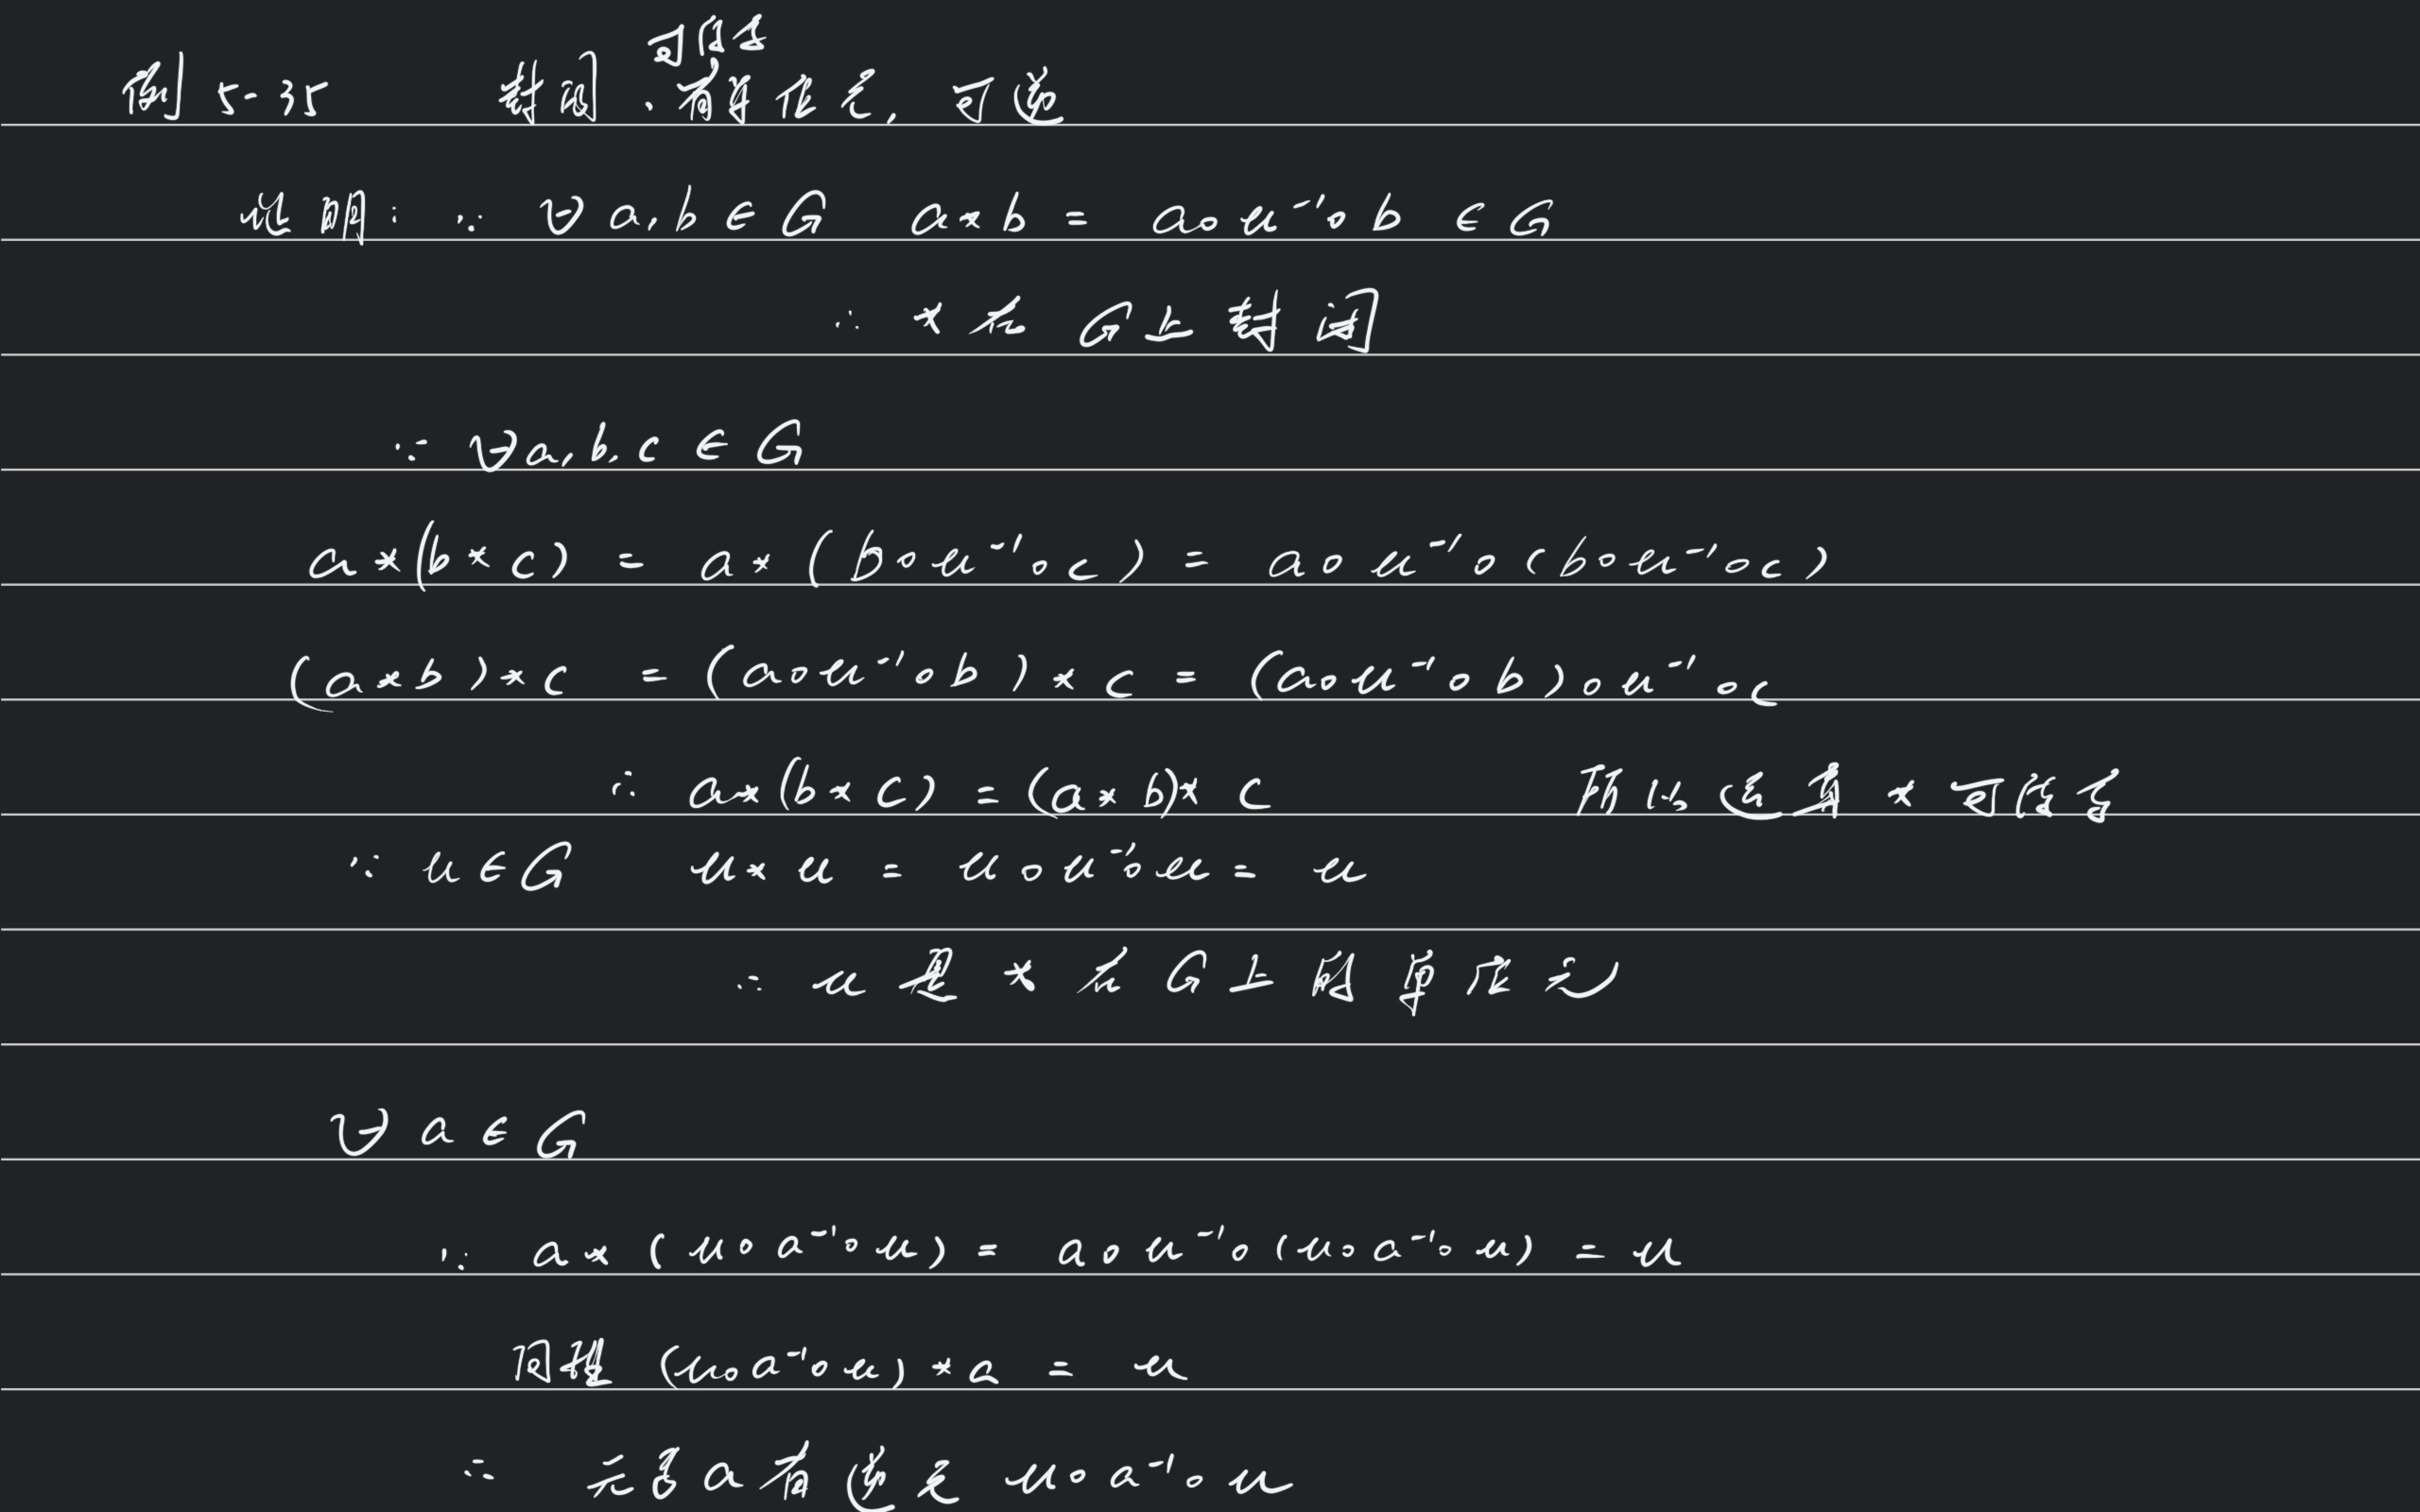 可结合
例 5-35 封闭、有单位元, 可逆
证明: ∵ ∀a,b∈G a*b = a∘u⁻¹∘b ∈G
∴ *在G上封闭
∵ ∀a,b,c∈G
a*(b*c) = a*(b∘u⁻¹∘c) = a∘u⁻¹∘(b∘u⁻¹∘c)
(a*b)*c = (a∘u⁻¹∘b)*c = (a∘u⁻¹∘b)∘u⁻¹∘c
∴ a*(b*c) = (a*b)*c 所以运算*可结合
∵ u∈G u*u = u∘u⁻¹∘u = u
∴ u是*在G上的单位元
∀a∈G
∵ a*(u∘a⁻¹∘u) = a∘u⁻¹∘(u∘a⁻¹∘u) = u
同理 (u∘a⁻¹∘u)*a = u
∴ 元素a有逆元 u∘a⁻¹∘u